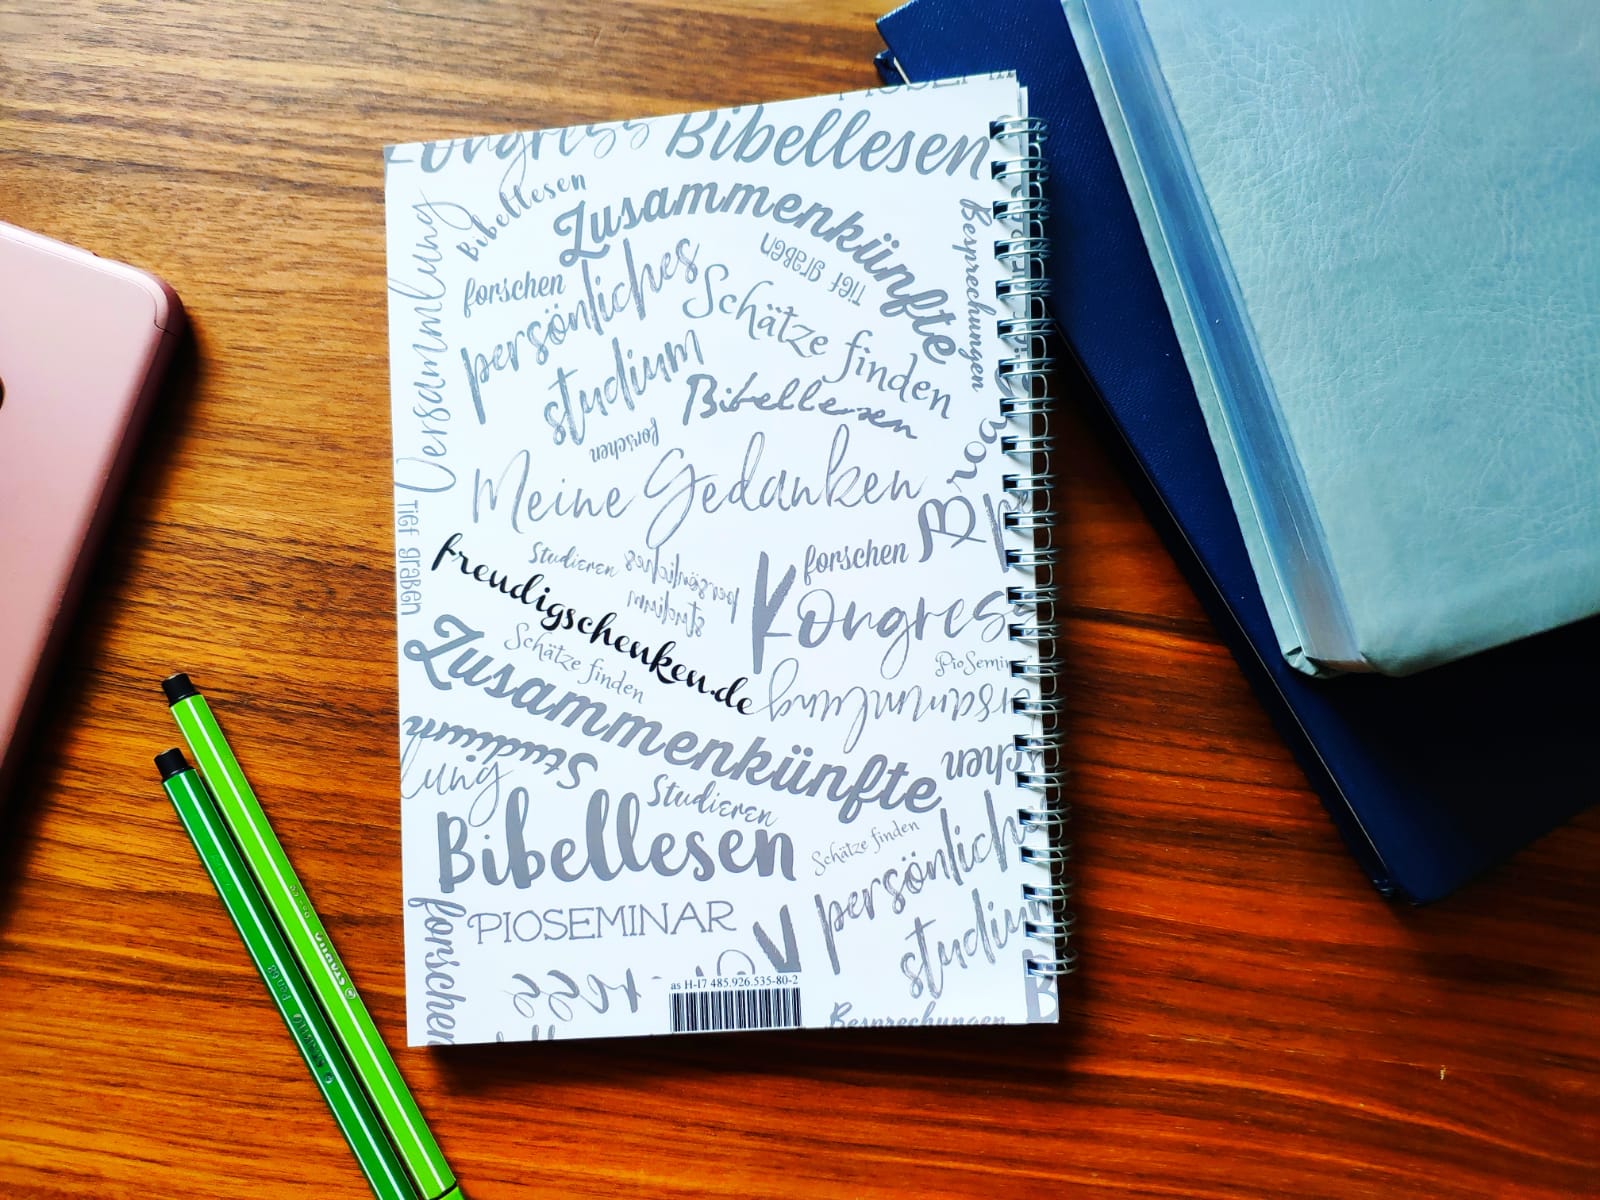 Kongress Bibellesen
Bibellesen
Zusammenkünfte
Versammlung
forschen
persönliches
studium
tief graben
Besprechungen
Schätze finden
Bibellesen
forschen
Meine Gedanken
tief graben
freudigschenken.de
Studieren
persönliches
studium
forschen
Kongress
Zusammenkünfte
Schätze finden
PioSemin
ersammlung
Studium
lung
Studieren
schen
Bibellesen
Schätze finden
persönlich
studium
forschen
PIOSEMINAR
as H-I7 485.926.535-80-2
Besprechungen
STABILO
Pen 68
STABILO